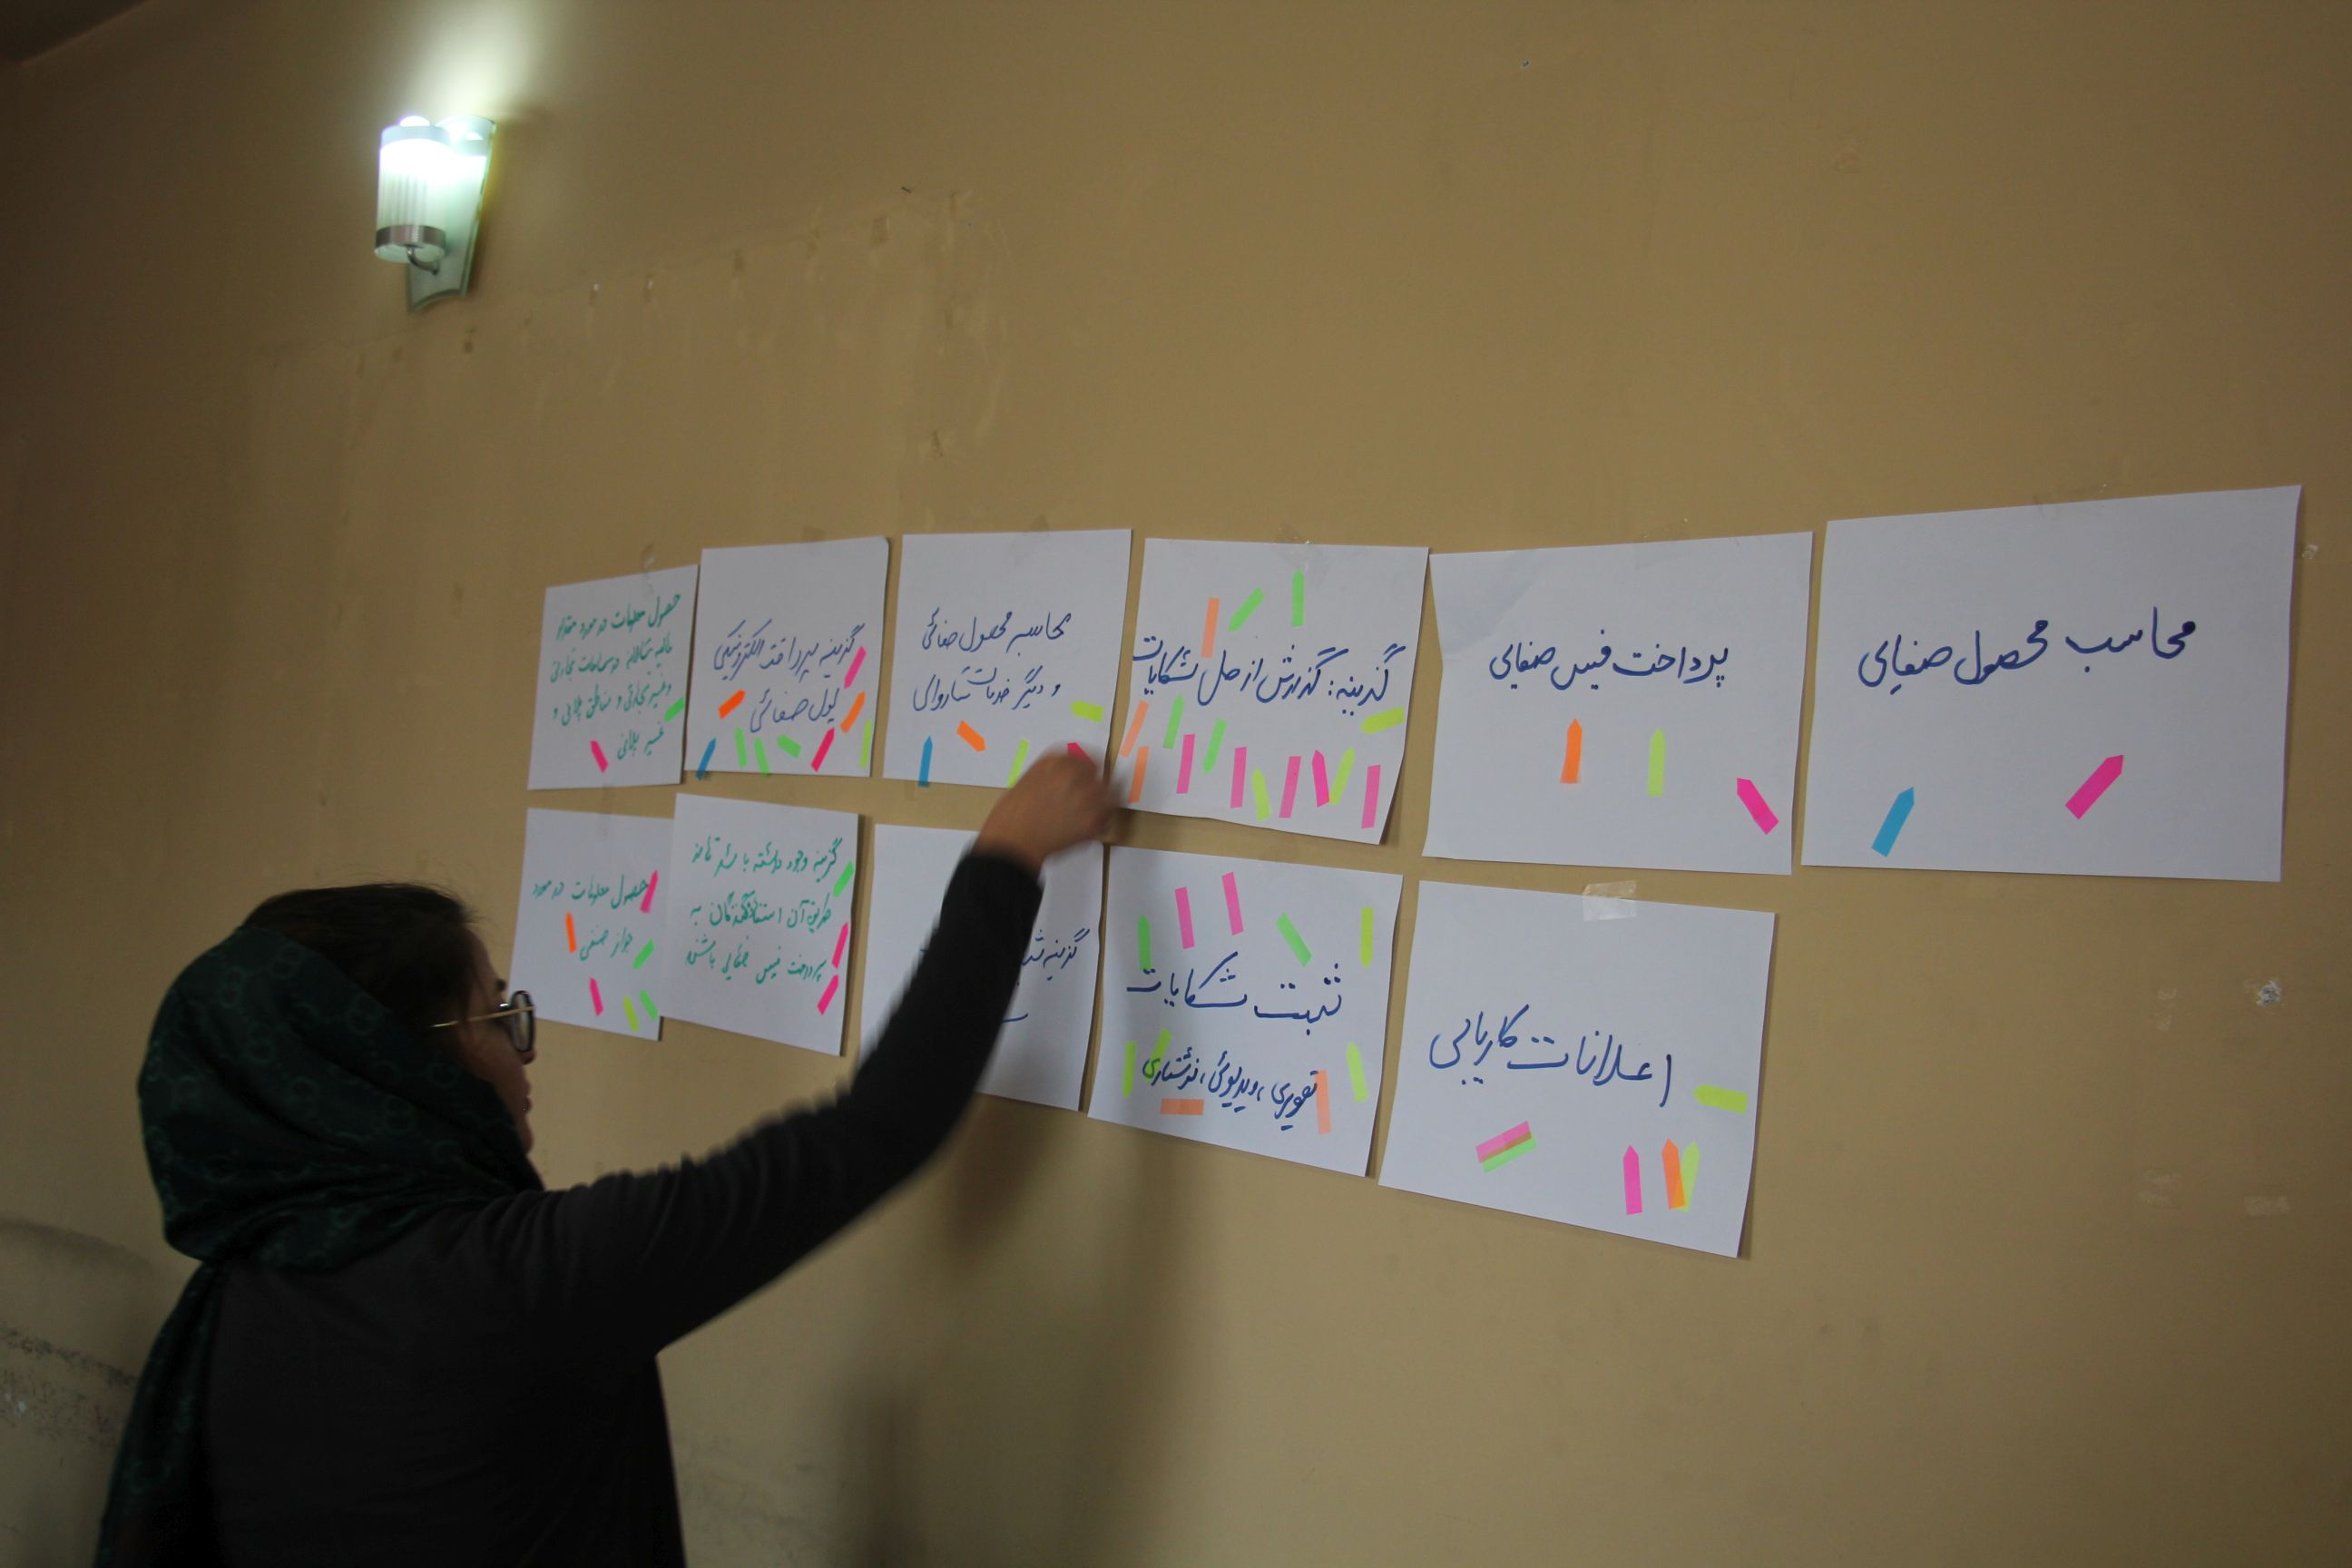 محاسب محصول صفایی
پرداخت فیس صفایی
گزینه: گذرش از حل شکایات
محاسبه محصول صفائی
و دیگر خدمات شاروالی
گزینه پرداخت الکترونیکی
پول صفائی
حصول معلومات در مورد مقدار
مالیه سالانه در ساحات تجارتی
و غیر تجارتی و مناطق پلانی و
غیر پلانی
اعلانات کاریابی
ثبت شکایات
تصویری، ویدیوئی، نوشتاری
گزینه
گزینه وجود داشته باشد تا از
طریق آن استفاده‌کنندگان به
پرداخت فیس صفایی باشند
حصول معلومات در مورد
جواز صنفی